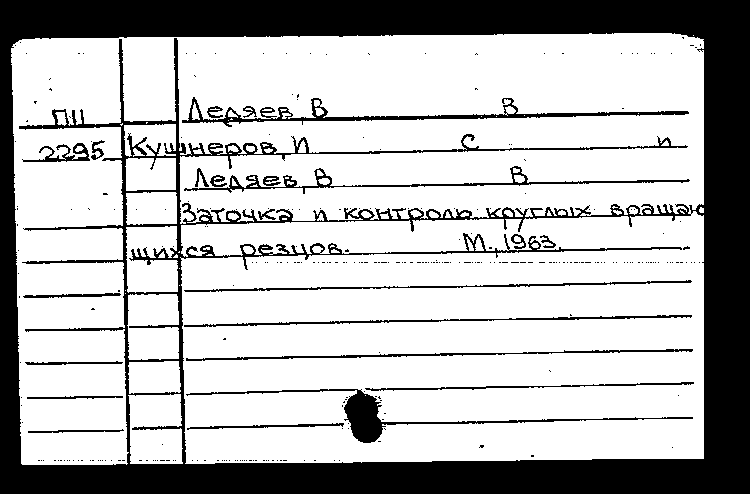 Ледяев, В В
ПII
2295 Кушнеров, И С и
Ледяев, В В
Заточка и контроль круглых вращаю
щихся резцов. М., 1963.